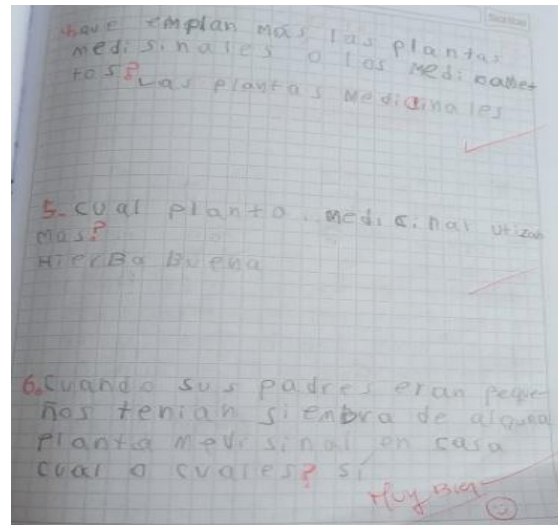 que emplan más las plantas
medisinales o los medicamen
tos?
Las plantas medicinales
5. cual planta medicinal utizan
mas?
HierBa Buena
6. Cuando sus padres eran peque
ños tenian siembra de alguna
planta medisinal en casa
cual o cuales? si
Muy Bien